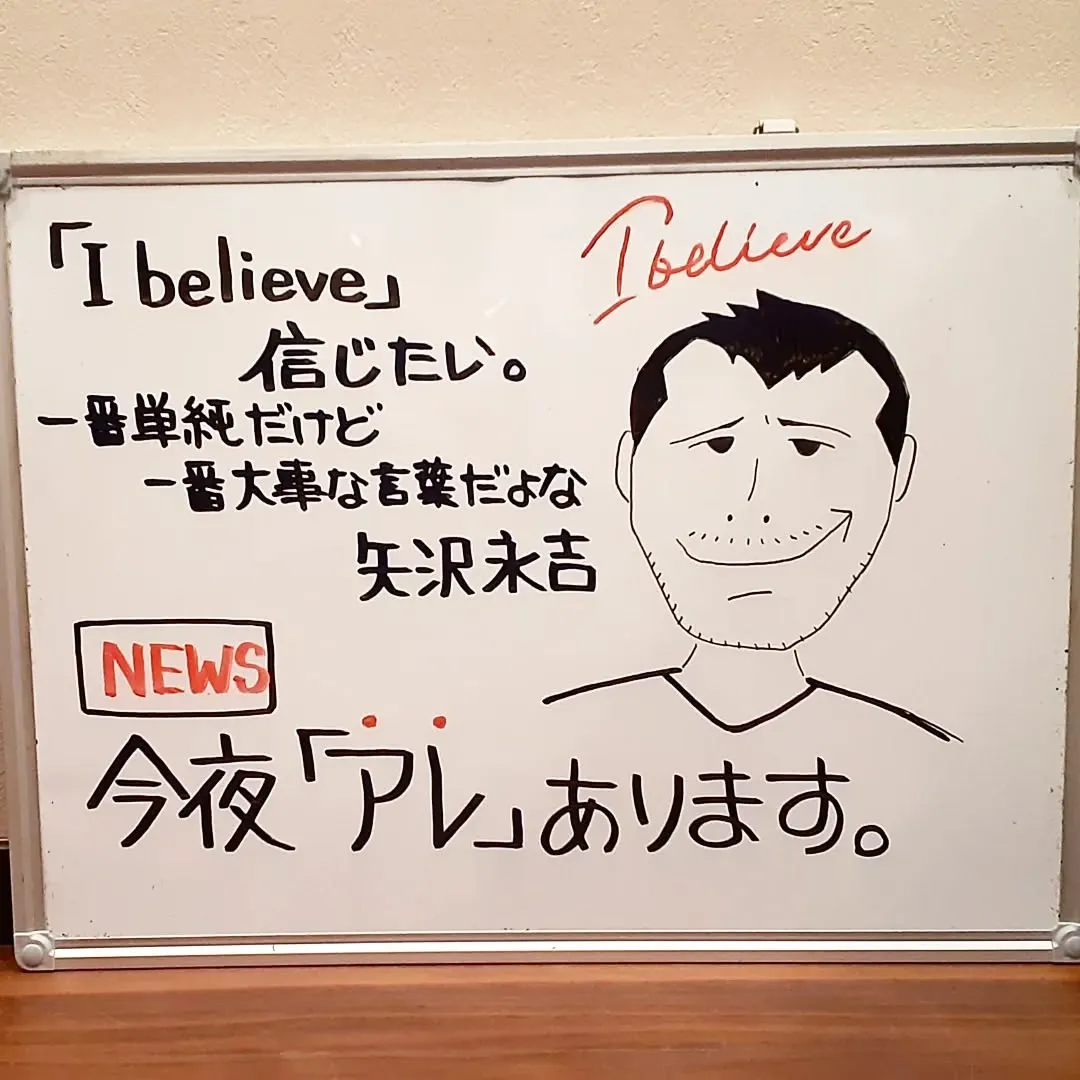 「I believe」
信じたい。
一番単純だけど
一番大事な言葉だよな
矢沢永吉
I believe
NEWS
今夜「アレ」あります。